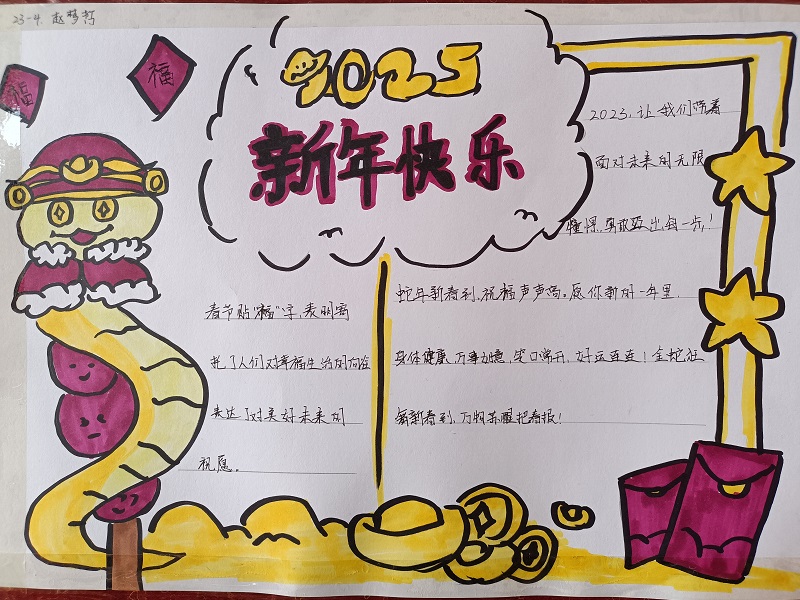 23-4. 赵梦哲
福
福
2025
新年快乐
2023,让我们带着
面对未来的无限
憧憬,勇敢迈出每一步!
春节贴“福”字,表明寄
托了人们对幸福生活的向往
表达了对美好未来的
祝愿。
蛇年新春到,祝福声声响。愿你新的一年里,
身体健康,万事如意,笑口常开,好运连连!金蛇狂
舞新春到,万物苏醒把春报!